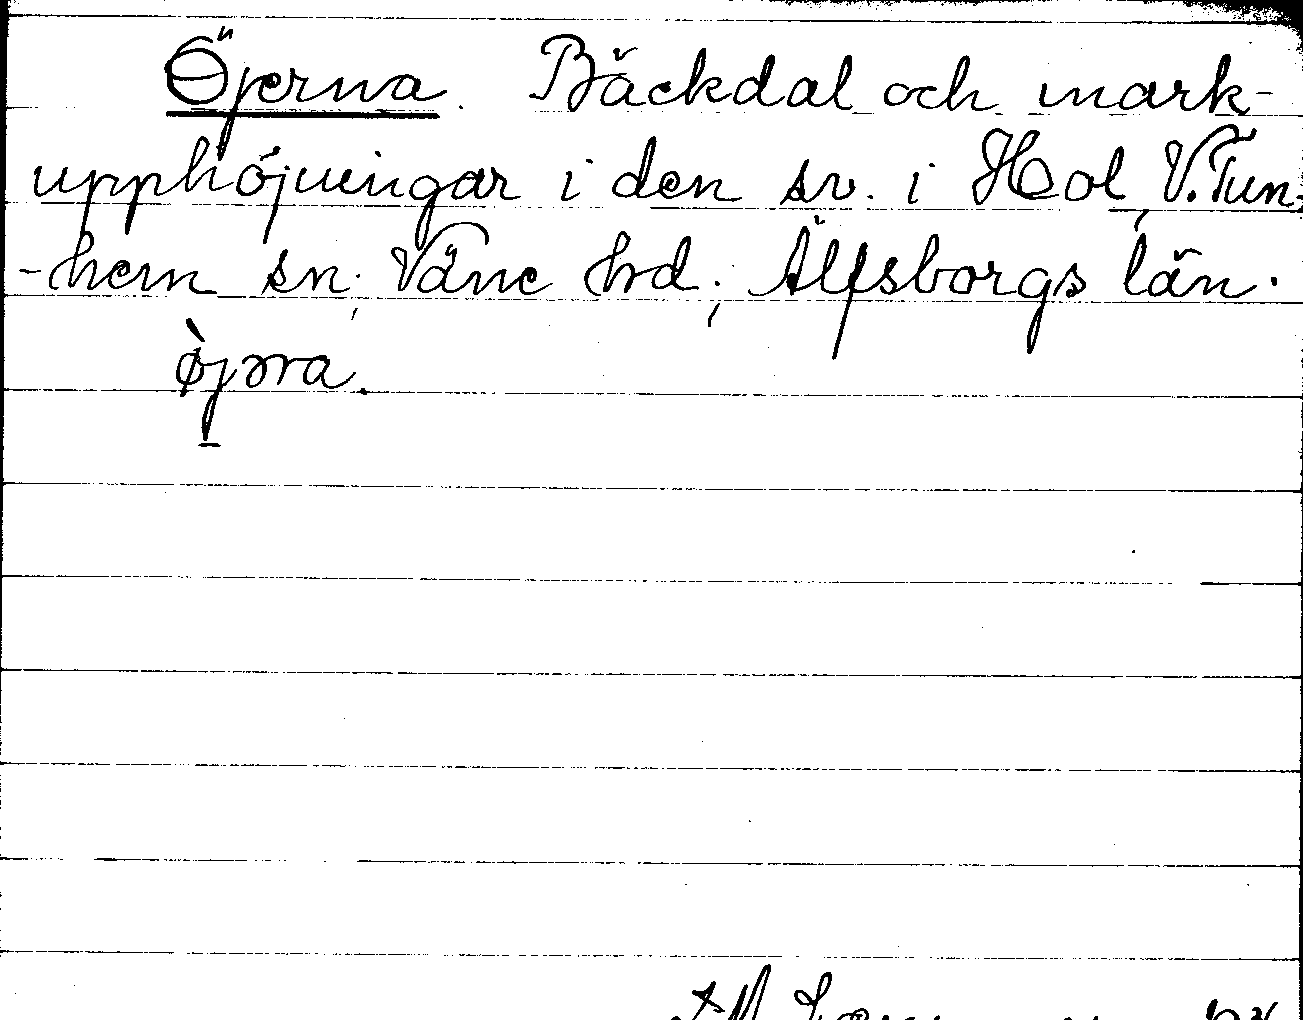 Öjerna. Bäckdal och mark-
upphöjningar i den sv. i Hol, V. Tun-
-hem sn; Väne hd; Älfsborgs län.
òjərа.